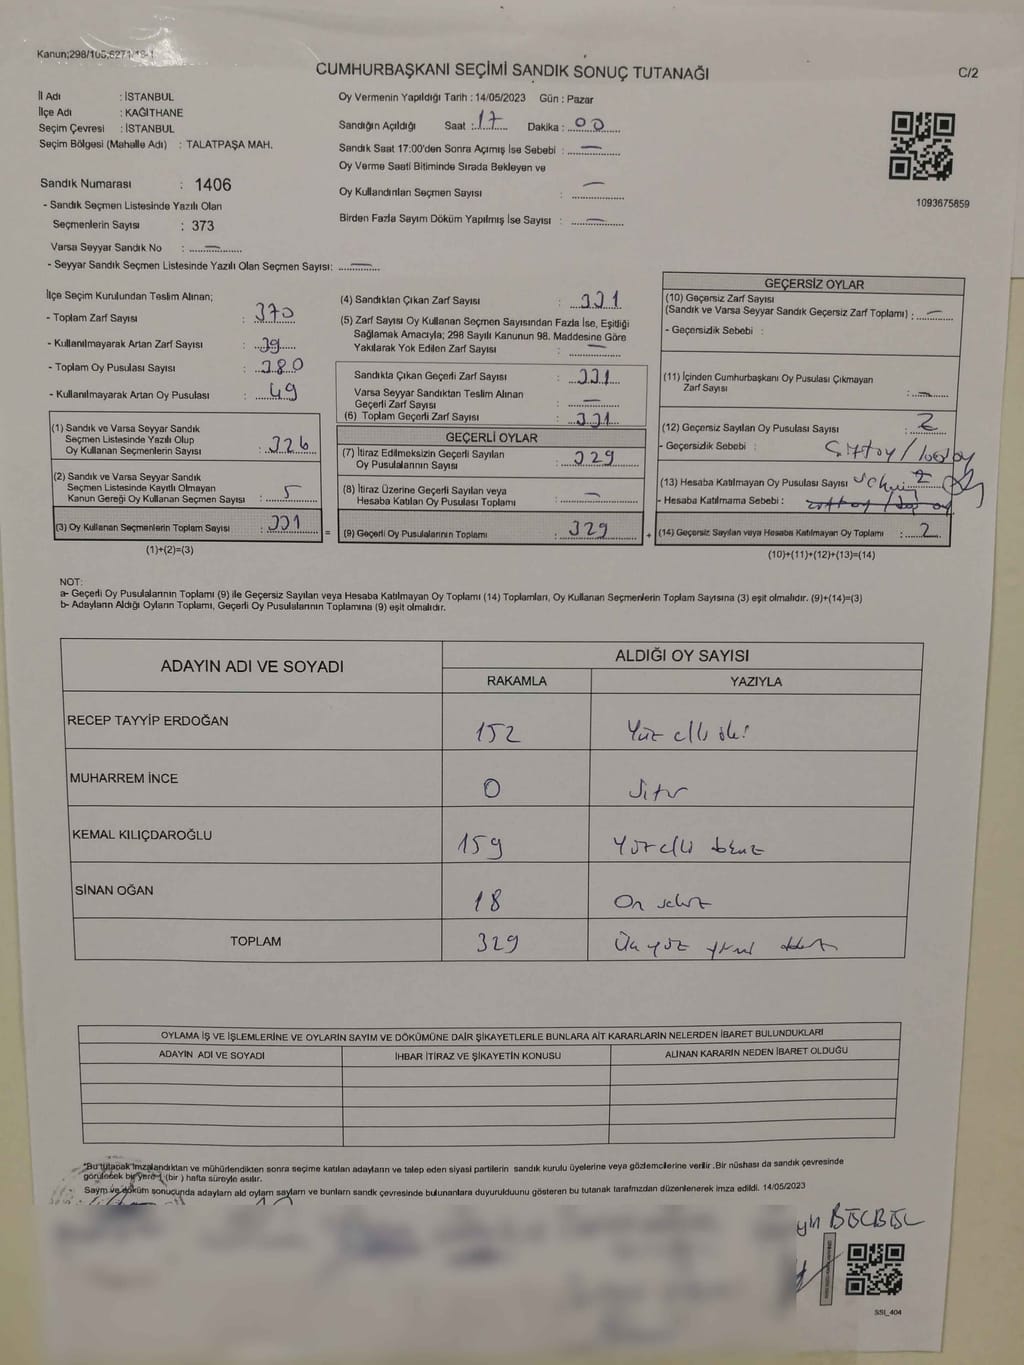 Kanun;298/105;6271/18-1
CUMHURBAŞKANI SEÇİMİ SANDIK SONUÇ TUTANAĞI
C/2
İl Adı : İSTANBUL
İlçe Adı : KAĞITHANE
Seçim Çevresi : İSTANBUL
Seçim Bölgesi (Mahalle Adı) : TALATPAŞA MAH.
Sandık Numarası : 1406
- Sandık Seçmen Listesinde Yazılı Olan
Seçmenlerin Sayısı : 373
Varsa Seyyar Sandık No : —
- Seyyar Sandık Seçmen Listesinde Yazılı Olan Seçmen Sayısı: —
Oy Vermenin Yapıldığı Tarih : 14/05/2023 Gün : Pazar
Sandığın Açıldığı Saat : 17 Dakika : 00
Sandık Saat 17:00'den Sonra Açımış İse Sebebi : —
Oy Verme Saati Bitiminde Sırada Bekleyen ve
Oy Kullandırılan Seçmen Sayısı : —
Birden Fazla Sayım Döküm Yapılmış İse Sayısı : —
1093675859
İlçe Seçim Kurulundan Teslim Alınan;
- Toplam Zarf Sayısı : 370
- Kullanılmayarak Artan Zarf Sayısı : 39
- Toplam Oy Pusulası Sayısı : 380
- Kullanılmayarak Artan Oy Pusulası : 49
(1) Sandık ve Varsa Seyyar Sandık
Seçmen Listesinde Yazılı Olup
Oy Kullanan Seçmenlerin Sayısı : 326
(2) Sandık ve Varsa Seyyar Sandık
Seçmen Listesinde Kayıtlı Olmayan
Kanun Gereği Oy Kullanan Seçmen Sayısı : 5
(3) Oy Kullanan Seçmenlerin Toplam Sayısı : 331
(1)+(2)=(3)
(4) Sandıktan Çıkan Zarf Sayısı : 331
(5) Zarf Sayısı Oy Kullanan Seçmen Sayısından Fazla İse, Eşitliği
Sağlamak Amacıyla; 298 Sayılı Kanunun 98. Maddesine Göre
Yakılarak Yok Edilen Zarf Sayısı : —
Sandıkta Çıkan Geçerli Zarf Sayısı : 331
Varsa Seyyar Sandıktan Teslim Alınan
Geçerli Zarf Sayısı : —
(6) Toplam Geçerli Zarf Sayısı : 331
GEÇERLİ OYLAR
(7) İtiraz Edilmeksizin Geçerli Sayılan
Oy Pusulalarının Sayısı : 329
(8) İtiraz Üzerine Geçerli Sayılan veya
Hesaba Katılan Oy Pusulası Toplamı : —
(9) Geçerli Oy Pusulalarının Toplamı : 329
GEÇERSİZ OYLAR
(10) Geçersiz Zarf Sayısı
(Sandık ve Varsa Seyyar Sandık Geçersiz Zarf Toplamı) : —
- Geçersizlik Sebebi :
(11) İçinden Cumhurbaşkanı Oy Pusulası Çıkmayan
Zarf Sayısı : —
(12) Geçersiz Sayılan Oy Pusulası Sayısı : 2
- Geçersizlik Sebebi :
(13) Hesaba Katılmayan Oy Pusulası Sayısı 2
- Hesaba Katılmama Sebebi :
(14) Geçersiz Sayılan veya Hesaba Katılmayan Oy Toplamı : 2
(10)+(11)+(12)+(13)=(14)
NOT:
a- Geçerli Oy Pusulalarının Toplamı (9) ile Geçersiz Sayılan veya Hesaba Katılmayan Oy Toplamı (14) Toplamları, Oy Kullanan Seçmenlerin Toplam Sayısına (3) eşit olmalıdır. (9)+(14)=(3)
b- Adayların Aldığı Oyların Toplamı, Geçerli Oy Pusulalarının Toplamına (9) eşit olmalıdır.
ADAYIN ADI VE SOYADI ALDIĞI OY SAYISI
RAKAMLA YAZIYLA
RECEP TAYYİP ERDOĞAN 152 Yüz elli iki
MUHARREM İNCE 0 Sıfır
KEMAL KILIÇDAROĞLU 159 Yüz elli dokuz
SİNAN OĞAN 18 On sekiz
TOPLAM 329 Üç yüz yirmi dokuz
OYLAMA İŞ VE İŞLEMLERİNE VE OYLARIN SAYIM VE DÖKÜMÜNE DAİR ŞİKAYETLERLE BUNLARA AİT KARARLARIN NELERDEN İBARET BULUNDUKLARI
ADAYIN ADI VE SOYADI İHBAR İTİRAZ VE ŞİKAYETİN KONUSU ALINAN KARARIN NEDEN İBARET OLDUĞU
*Bu tutanak imzalandıktan ve mühürlendikten sonra seçime katılan adayların ve talep eden siyasi partilerin sandık kurulu üyelerine veya gözlemcilerine verilir .Bir nüshası da sandık çevresinde
görülecek bir yere 1 (bir ) hafta süreyle asılır.
Sayım ve döküm sonucunda adayların ald oyların sayların ve bunların sandık çevresinde bulunanlara duyurulduunu gösteren bu tutanak tarafmzdan düzenlenerek imza edildi. 14/05/2023
SSI_404